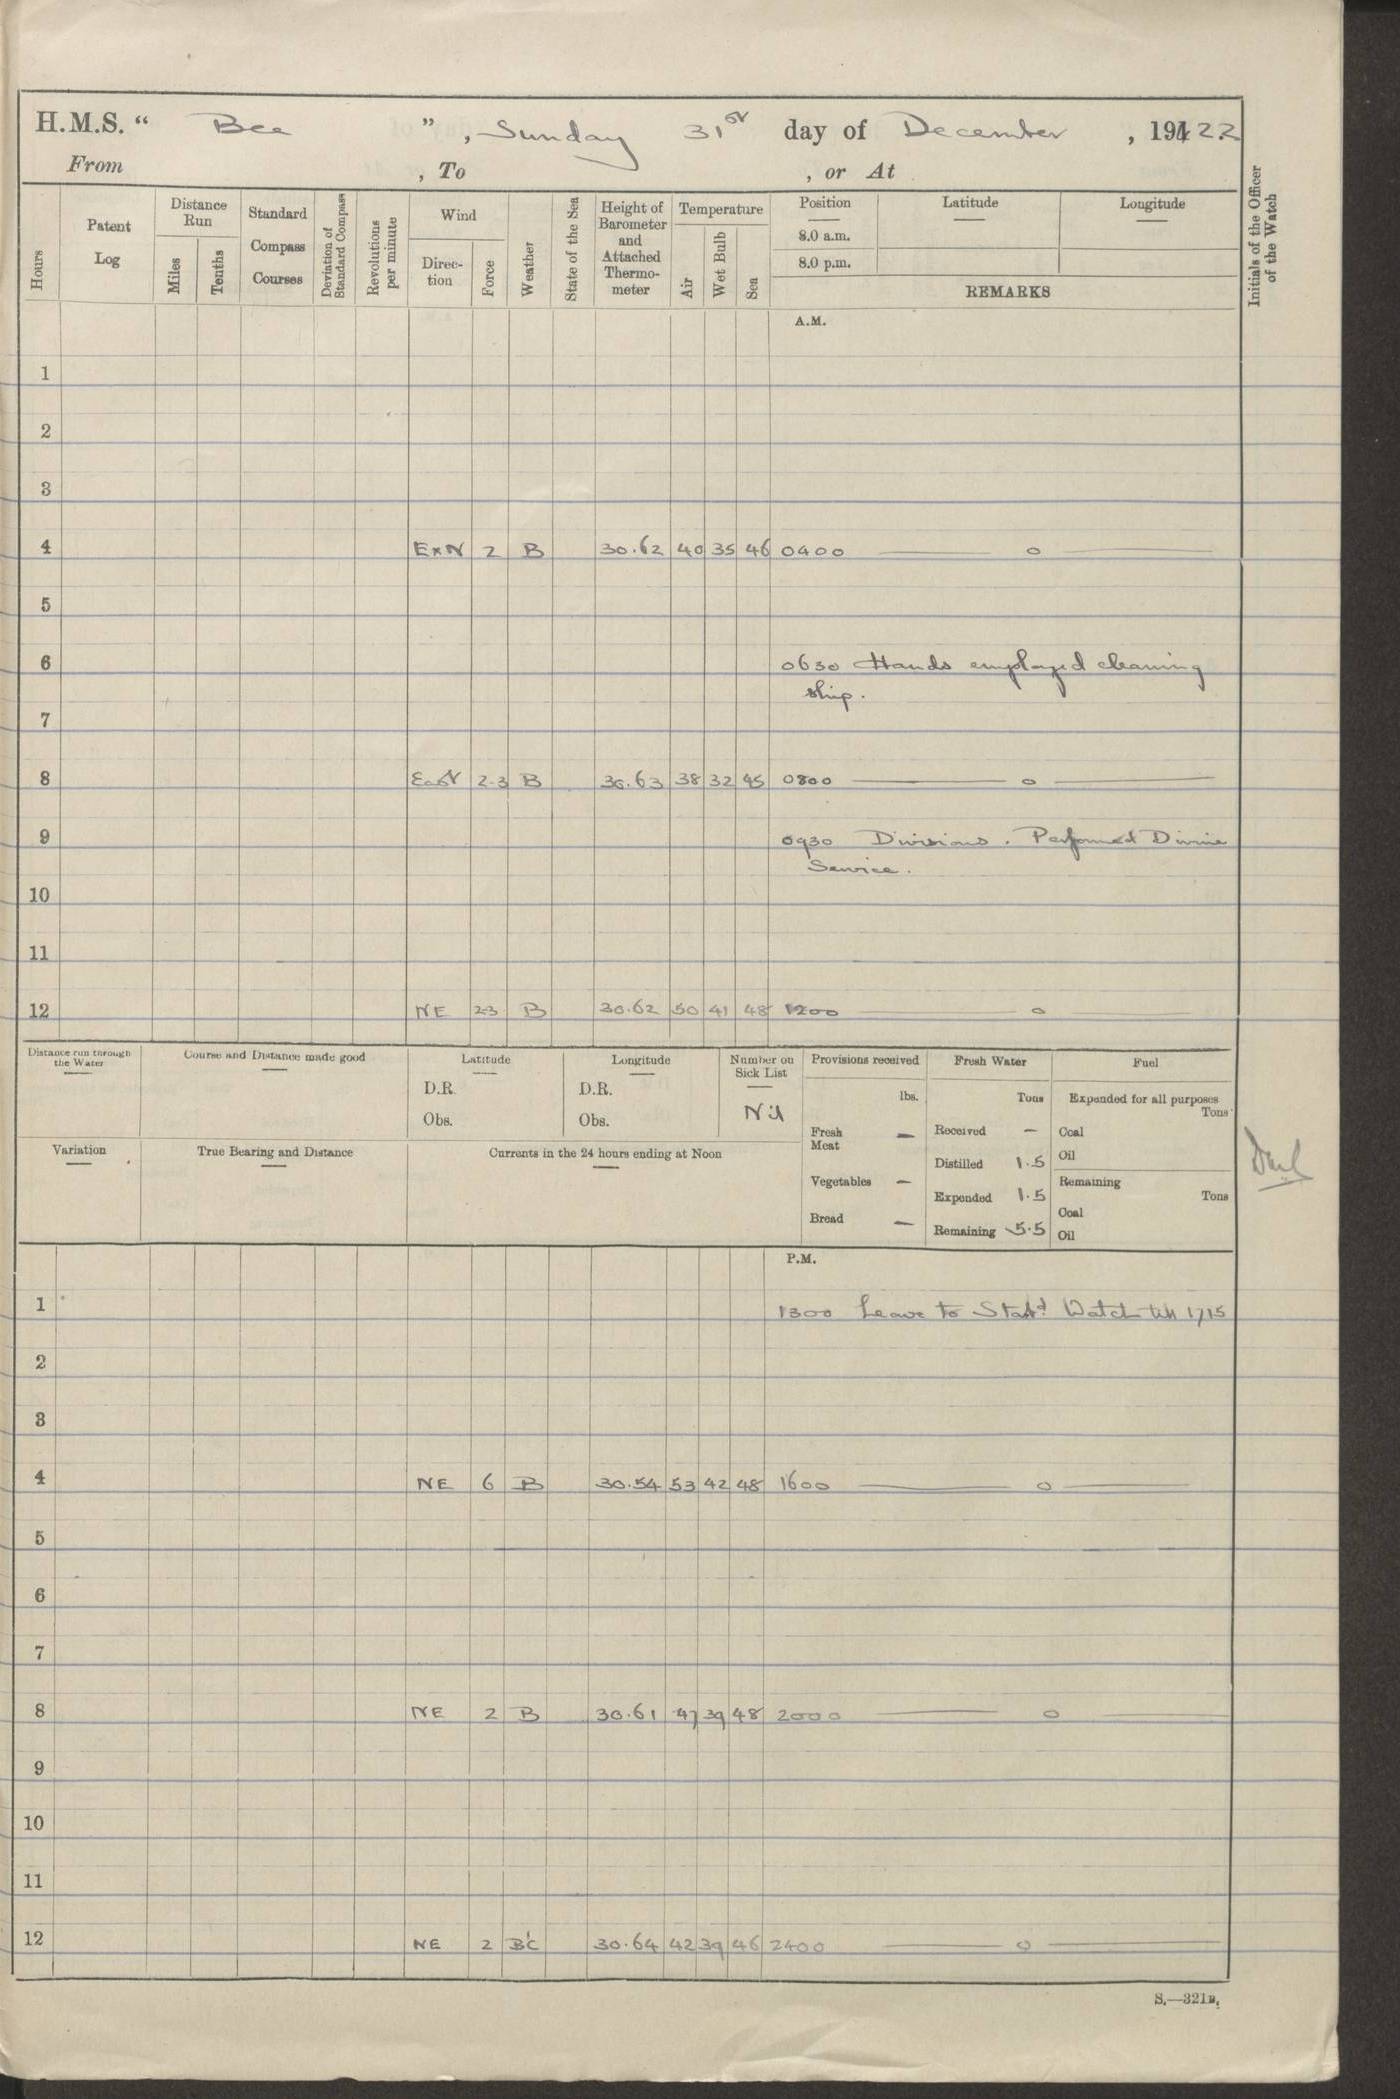 H.M.S. “ Bee ” , Sunday 31st day of December , 1922
From , To , or At
Hours
Patent Log
Distance Run
Miles
Tenths
Standard Compass Courses
Deviation of Standard Compass
Revolutions per minute
Wind
Direc-tion
Force
Weather
State of the Sea
Height of Barometer and Attached Thermo-meter
Temperature
Air
Wet Bulb
Sea
Position
8.0 a.m.
8.0 p.m.
Latitude
Longitude
REMARKS
Initials of the Officer of the Watch
A.M.
1
2
3
4 ExN 2 B 30.62 40 35 46 0400 — o —
5
6 0630 Hands employed cleaning
ship.
7
8 East 2-3 B 30.63 38 32 45 0800 — o —
9 0930 Divisions. Performed Divine
Service.
10
11
12 NE 2-3 B 30.62 50 41 48 1200 — o —
Distance run through the Water
Course and Distance made good
Latitude
D.R.
Obs.
Longitude
D.R.
Obs.
Number on Sick List
Nil
Variation
True Bearing and Distance
Currents in the 24 hours ending at Noon
Provisions received
lbs.
Fresh Meat —
Vegetables —
Bread —
Fresh Water
Tons
Received —
Distilled 1.5
Expended 1.5
Remaining 5.5
Fuel
Expended for all purposes
Tons
Coal
Oil
Remaining
Tons
Coal
Oil
P.M.
1 1300 Leave to Starbd Watch till 1715
2
3
4 NE 6 B 30.54 53 42 48 1600 — o —
5
6
7
8 NE 2 B 30.61 47 39 48 2000 — o —
9
10
11
12 NE 2 BC 30.64 42 39 46 2400 — o —
S.—321B.